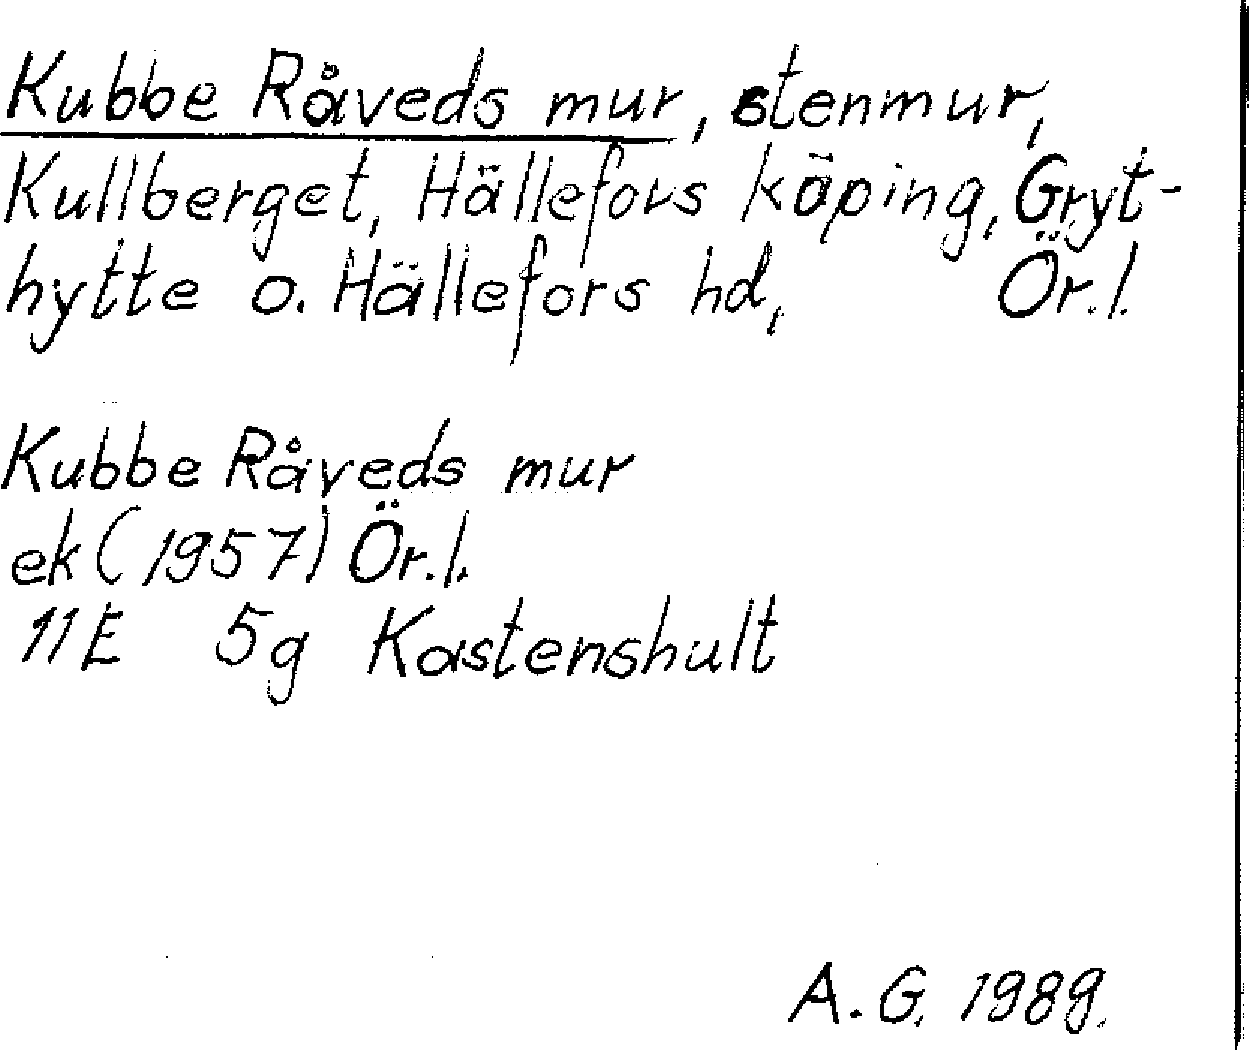 Kubbe Råveds mur, stenmur,
Kullberget, Hällefors köping, Gryt-
hytte o. Hällefors hd, Ör.l.
Kubbe Råveds mur
ek (1957) Ör.l.
11E 5g Kastenshult
A.G. 1989.